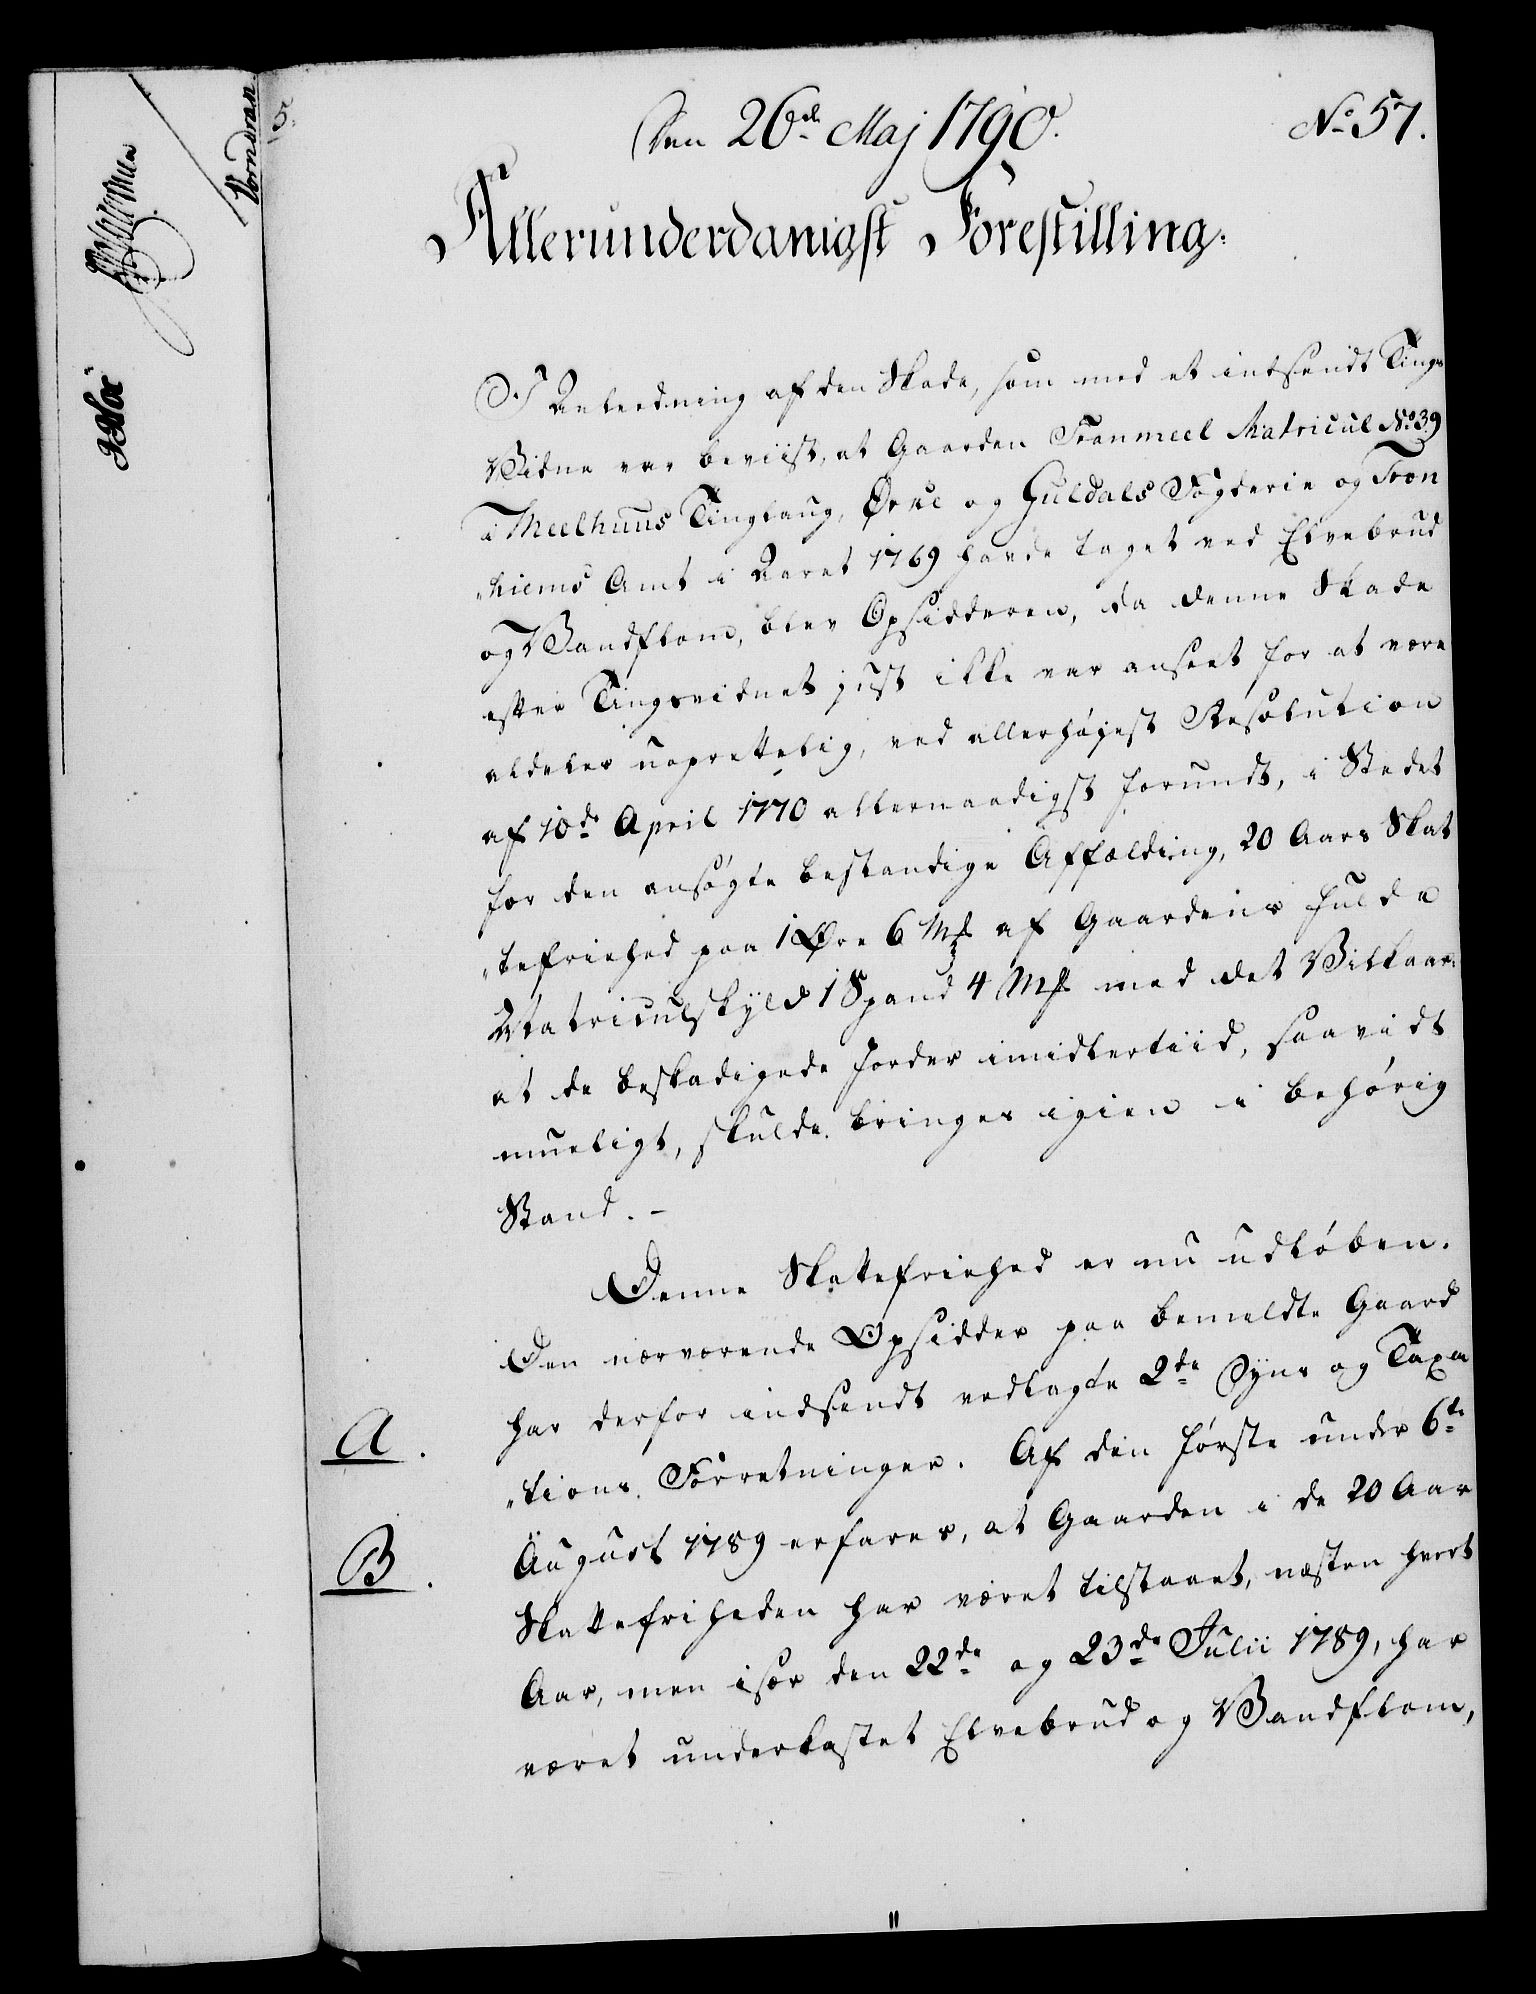 5.
Den 26de Maj 1790.
No 57.
Allerunderdanigst Forestilling.
I Anledning af den Skade, som med et indsendt Tings
Vidne var beviist, at Gaarden Frammeel Matricul No 39
i Meelhuus Tinglaug, Örke og Guldals Fogderie og Tron
„hiems Amt i Aaret 1769 havde taget ved Elvebrud
og Vandflom, blev Opsidderen, da denne Skade
efter Tingsvidnet just ikke var anseet for at være
aldeles uoprettelig, ved allerhøjest Resolution
af 10de April 1770 allernaadigst forundt, i Stedet
for den ansøgte bestandige Affældning, 20 Aars Skat
„tefriehed paa 1 Øre 6 Mk af Gaardens fulde
Matriculskyld 1 Spand 4 Mk med det Vilkaar
at de beskadigede Jorder imidlertiid, saavidt
mueligt, skulde bringes igien i behørig
Stand. –
Denne Skattefriehed er nu udløben.
Den nærværende Opsidder paa bemeldte Gaard
har derfor indsendt vedlagte 2de Syns og Taxa
A.
„tions Forretninger. Af den første under 6te
B.
August 1789 erfares, at Gaarden i de 20 Aar
Skattefriheden har været tilstaaet, næsten hvert
Aar, men især den 22de og 23de Julii 1789, har
været underkastet Elvebrud og Vandflom,